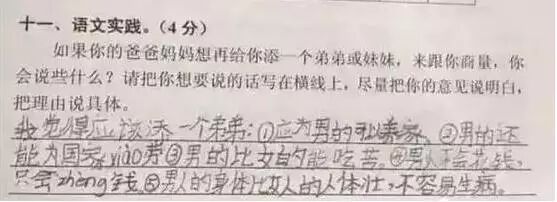 十一、语文实践。(4分)
如果你的爸爸妈妈想再给你添一个弟弟或妹妹，来跟你商量，你
会说些什么？请把你想要说的话写在横线上，尽量把你的意见说明白，
把理由说具体。
我觉得应该添一个弟弟：①应为男的可以养家。②男的还
能为国家xiào劳③男的比女的能吃苦。④男人不会花钱，
只会zhèng钱。⑤男人的身体比女人的人体壮，不容易生病。